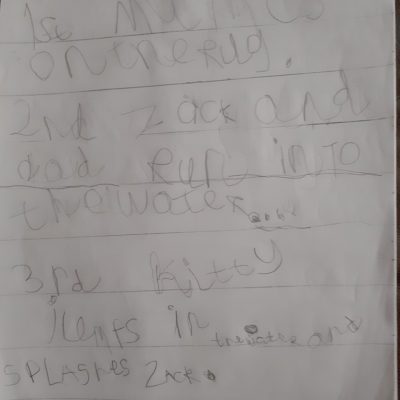 1st Mum is
on the Rug.
2nd Zack and
dad Run in To
the water
3rd Kitty
Jumps in the water and
SPLAshes Zack.